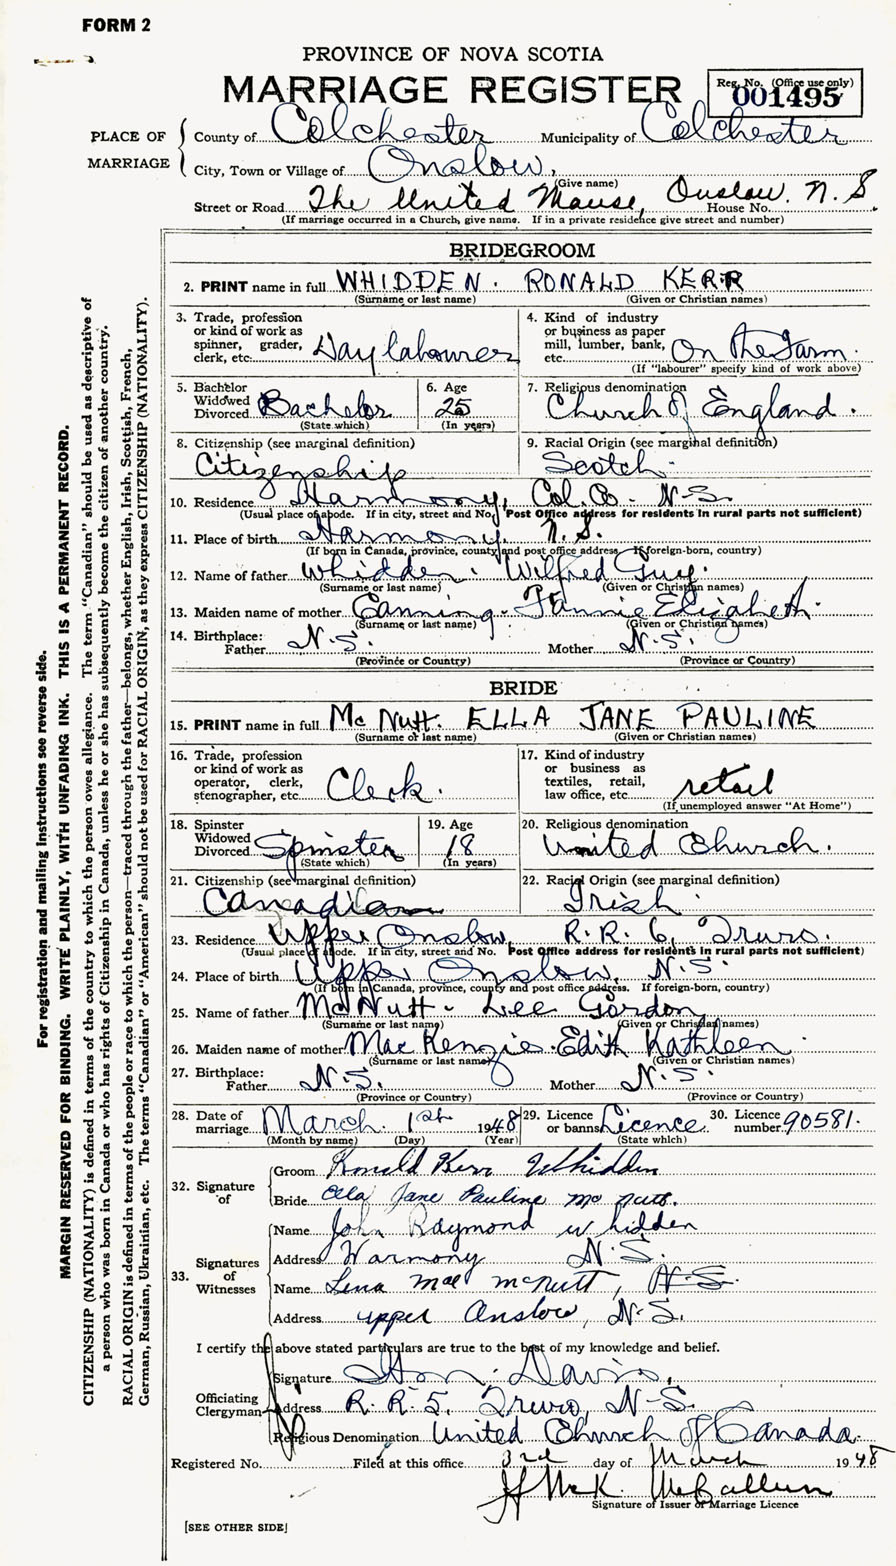 FORM 2
PROVINCE OF NOVA SCOTIA
MARRIAGE REGISTER
Reg. No. (Office use only)
001495
PLACE OF MARRIAGE
County of Colchester Municipality of Colchester
City, Town or Village of Onslow,
(Give name)
Street or Road The United Manse, Onslow. N. S.
House No.
(If marriage occurred in a Church, give name. If in a private residence give street and number)
BRIDEGROOM
2. PRINT name in full WHIDDEN. RONALD KERR
(Surname or last name) (Given or Christian names)
3. Trade, profession or kind of work as spinner, grader, clerk, etc. Day labourer
4. Kind of industry or business as paper mill, lumber, bank, etc. On the Farm.
(If "labourer" specify kind of work above)
5. Bachelor Widowed Divorced Bachelor
(State which)
6. Age 25
(In years)
7. Religious denomination Church of England.
8. Citizenship (see marginal definition) Citizenship
9. Racial Origin (see marginal definition) Scotch
10. Residence Harmony, Col. Co. N-S.
(Usual place of abode. If in city, street and No. Post Office address for residents in rural parts not sufficient)
11. Place of birth Harmony. N. S.
(If born in Canada, province, county and post office address. If foreign-born, country)
12. Name of father Whidden. Wilfred Guy.
(Surname or last name) (Given or Christian names)
13. Maiden name of mother Canning. Fannie Elizabeth.
(Surname or last name) (Given or Christian names)
14. Birthplace:
Father N. S. Mother N. S.
(Province or Country) (Province or Country)
BRIDE
15. PRINT name in full McNutt. ELLA JANE PAULINE
(Surname or last name) (Given or Christian names)
16. Trade, profession or kind of work as operator, clerk, stenographer, etc. Clerk.
17. Kind of industry or business as textiles, retail, law office, etc. retail
(If unemployed answer "At Home")
18. Spinster Widowed Divorced Spinster
(State which)
19. Age 18
(In years)
20. Religious denomination United Church.
21. Citizenship (see marginal definition) Canadian
22. Racial Origin (see marginal definition) Irish
23. Residence Upper Onslow R. R. 6, Truro.
(Usual place of abode. If in city, street and No. Post Office address for residents in rural parts not sufficient)
24. Place of birth Upper Onslow, N. S.
(If born in Canada, province, county and post office address. If foreign-born, country)
25. Name of father McNutt - Lee Gordon
(Surname or last name) (Given or Christian names)
26. Maiden name of mother MacKenzie. Edith Kathleen.
(Surname or last name) (Given or Christian names)
27. Birthplace:
Father N. S. Mother N. S.
(Province or Country) (Province or Country)
28. Date of marriage March. 1st 1948
(Month by name) (Day) (Year)
29. Licence or banns Licence.
(State which)
30. Licence number 90581.
32. Signature of
Groom Ronald Kerr Whidden
Bride Ella Jane Pauline McNutt.
33. Signatures of Witnesses
Name John Raymond Whidden
Address Harmony N. S.
Name Lena Mae McNutt, N. S.
Address upper Onslow, N. S.
I certify the above stated particulars are true to the best of my knowledge and belief.
Officiating Clergyman
Signature Davis,
Address R. R. 5. Truro, N-S.
Religious Denomination United Church of Canada.
Registered No. Filed at this office 3rd day of March 1948
McK. McCallum
Signature of Issuer of Marriage Licence
[SEE OTHER SIDE]
For registration and mailing instructions see reverse side.
MARGIN RESERVED FOR BINDING. WRITE PLAINLY, WITH UNFADING INK. THIS IS A PERMANENT RECORD.
CITIZENSHIP (NATIONALITY) is defined in terms of the country to which the person owes allegiance. The term "Canadian" should be used as descriptive of
a person who was born in Canada or who has rights of Citizenship in Canada, unless he or she has subsequently become the citizen of another country.
RACIAL ORIGIN is defined in terms of the people or race to which the person—traced through the father—belongs, whether English, Irish, Scottish, French,
German, Russian, Ukrainian, etc. The terms "Canadian" or "American" should not be used for RACIAL ORIGIN, as they express CITIZENSHIP (NATIONALITY).